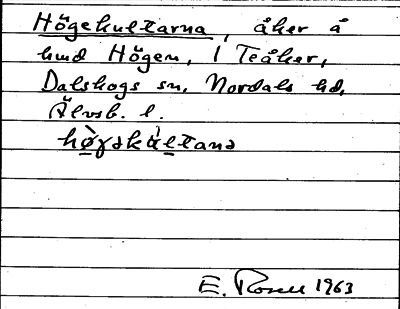 Högekultarna, åker å
hmd Högen, 1 Teåker,
Dalskogs sn, Nordals hd,
Älvsb. l.
E. Rosell 1963